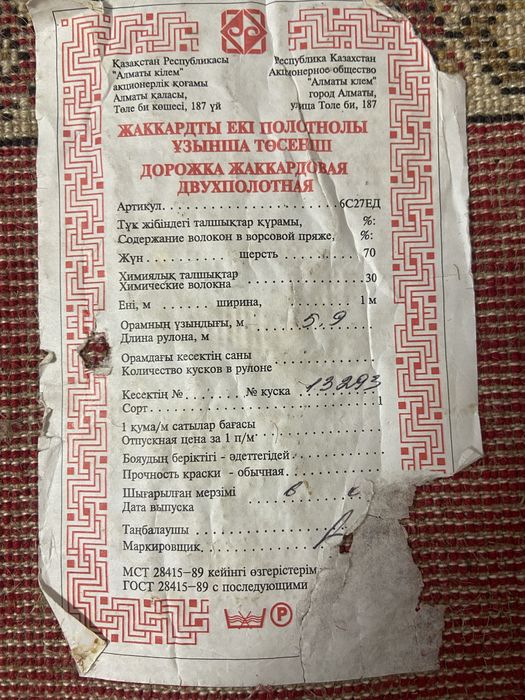 Қазақстан Республикасы
"Алматы кілем"
акционерлік қоғамы
Алматы қаласы,
Төле би көшесі, 187 үй
Республика Казахстан
Акционерное общество
"Алматы клем"
город Алматы,
улица Толе би, 187
ЖАККАРДТЫ ЕКІ ПОЛОТНОЛЫ
ҰЗЫНША ТӨСЕНІШ
ДОРОЖКА ЖАККАРДОВАЯ
ДВУХПОЛОТНАЯ
Артикул. . . . . . . . . . . . . . . . . . 6С27ЕД
Түк жібіндегі талшықтар құрамы, %:
Содержание волокон в ворсовой пряже, %:
Жүн . . . . . . . . . шерсть . . . . . . . . 70
Химиялық талшықтар
Химические волокна . . . . . . . . . . . 30
Ені, м . . . . . . ширина, . . . . . . . . 1 м
Орамның ұзындығы, м . . . 5.9 . . .
Длина рулона, м
Орамдағы кесектің саны
Количество кусков в рулоне
Кесектің № . . . . № куска . 13293
Сорт . . . . . . . . . . . . . . . . . . . . . 1
1 қума/м сатылар бағасы
Отпускная цена за 1 п/м
Бояудың беріктігі - әдеттегідей
Прочность краски - обычная
Шығарылған мерзімі
Дата выпуска
Таңбалаушы
Маркировщик
МСТ 28415—89 кейінгі өзгерістерім
ГОСТ 28415—89 с последующими
P